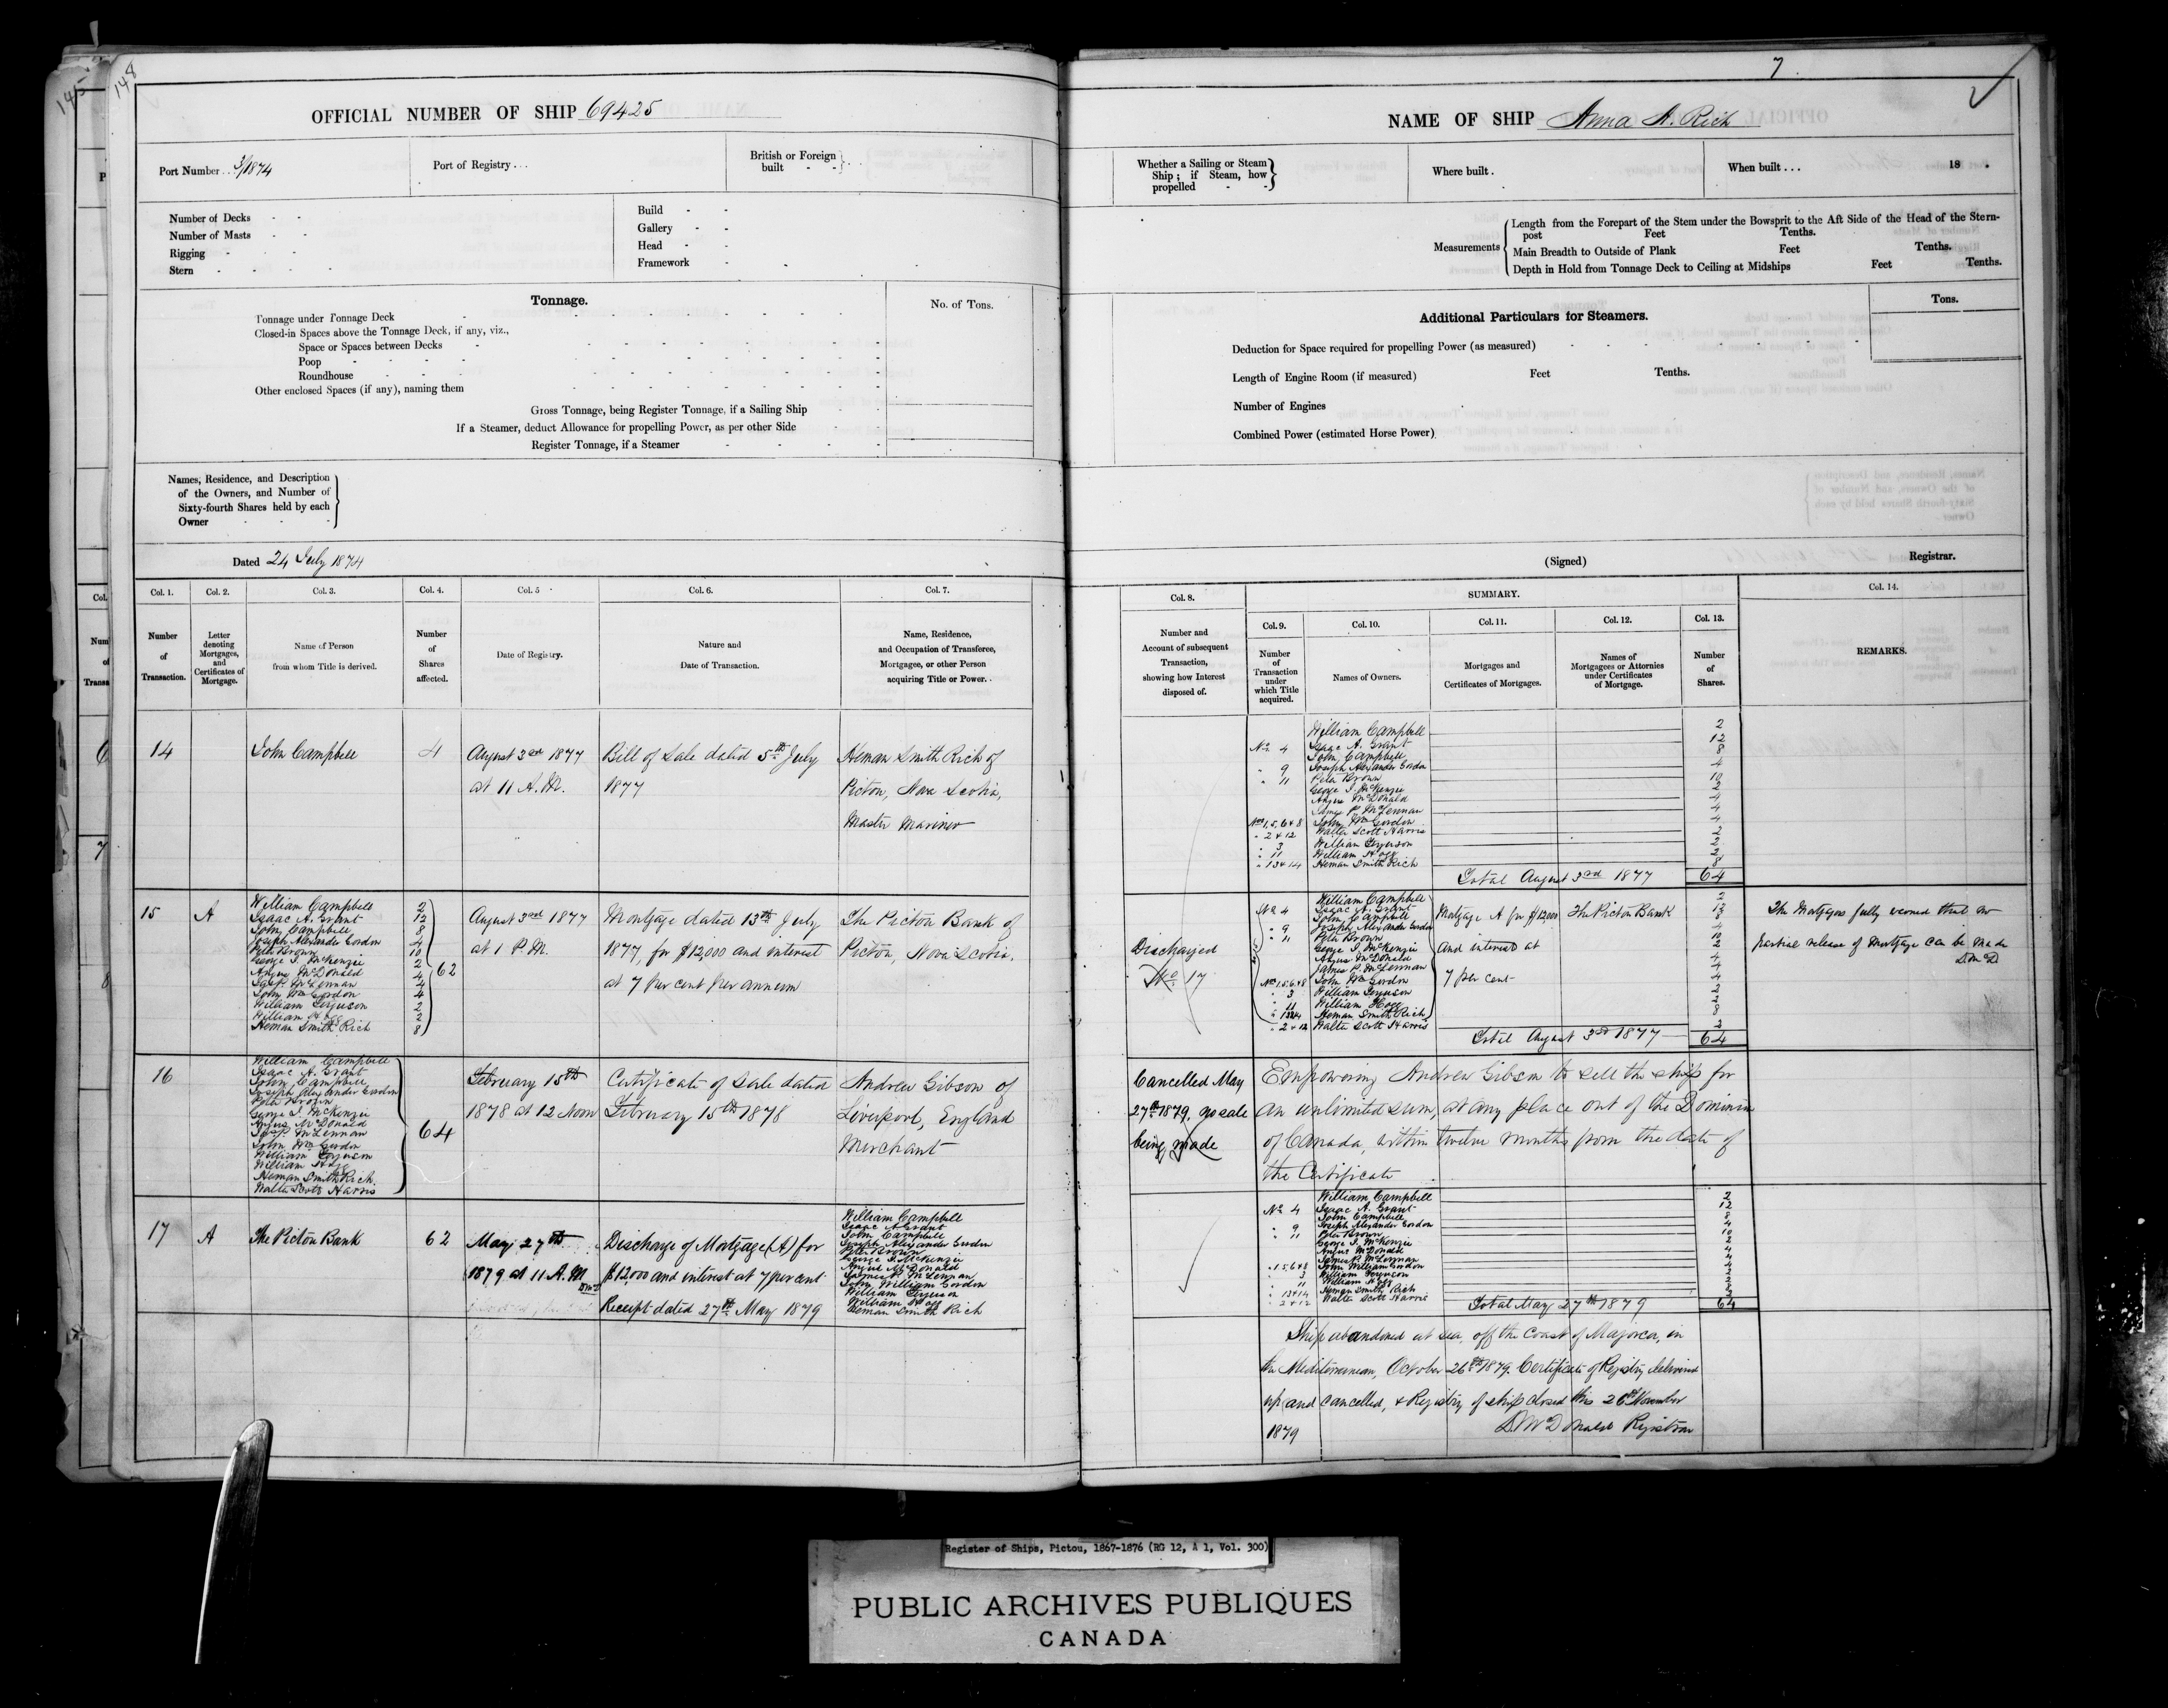 148
7.
OFFICIAL NUMBER OF SHIP 69425
NAME OF SHIP Anna A. Rich
Port Number . . 3/1874
Port of Registry . . .
British or Foreign
built - -
Whether a Sailing or Steam
Ship; if Steam, how
propelled - -
Where built .
When built . . . 18 .
Number of Decks - -
Number of Masts - -
Rigging - -
Stern - - - -
Build - -
Gallery - -
Head - -
Framework - -
Measurements
Length from the Forepart of the Stem under the Bowsprit to the Aft Side of the Head of the Stern-
post Feet Tenths.
Main Breadth to Outside of Plank Feet Tenths.
Depth in Hold from Tonnage Deck to Ceiling at Midships Feet Tenths.
Tonnage.
No. of Tons.
Tonnage under Tonnage Deck
Closed-in Spaces above the Tonnage Deck, if any, viz.,
Space or Spaces between Decks
Poop
Roundhouse
Other enclosed Spaces (if any), naming them
Gross Tonnage, being Register Tonnage, if a Sailing Ship
If a Steamer, deduct Allowance for propelling Power, as per other Side
Register Tonnage, if a Steamer
Additional Particulars for Steamers.
Tons.
Deduction for Space required for propelling Power (as measured)
Length of Engine Room (if measured) Feet Tenths.
Number of Engines
Combined Power (estimated Horse Power)
Names, Residence, and Description
of the Owners, and Number of
Sixty-fourth Shares held by each
Owner
Dated 24 July 1874
(Signed) Registrar.
Col. 1.
Number
of
Transaction.
Col. 2.
Letter
denoting
Mortgages,
and
Certificates of
Mortgage.
Col. 3.
Name of Person
from whom Title is derived.
Col. 4.
Number
of
Shares
affected.
Col. 5
Date of Registry.
Col. 6.
Nature and
Date of Transaction.
Col. 7.
Name, Residence,
and Occupation of Transferee,
Mortgagee, or other Person
acquiring Title or Power.
Col. 8.
Number and
Account of subsequent
Transaction,
showing how Interest
disposed of.
SUMMARY.
Col. 9.
Number
of
Transaction
under
which Title
acquired.
Col. 10.
Names of Owners.
Col. 11.
Mortgages and
Certificates of Mortgages.
Col. 12.
Names of
Mortgagees or Attornies
under Certificates
of Mortgage.
Col. 13.
Number
of
Shares.
Col. 14.
REMARKS.
14
John Campbell
4
August 3rd 1877
at 11 A.M.
Bill of Sale dated 5th July
1877
Heman Smith Rich of
Pictou, Nova Scotia,
Master Mariner
William Campbell 2
No. 4 Isaac A. Grant 12
John Campbell 8
" 9 Joseph Alexander Gordon 4
" 11 Peter Brown 10
George I. McKenzie 2
Angus McDonald 4
James P. McLennan 4
Nos 1, 5, 6 & 8 John Wm Gordon 4
" 2 & 12 Walter Scott Harris 2
" 3 William Ferguson 2
" 11 William Hogg 2
" 13 & 14 Heman Smith Rich 8
Total August 3rd 1877 64
15
A
William Campbell 2
Isaac A. Grant 12
John Campbell 8
Joseph Alexander Gordon 4
Peter Brown 10
George I. McKenzie 2
Angus McDonald 4
Jas P. McLennan 4
John Wm Gordon 4
William Ferguson 2
William Hogg 2
Heman Smith Rich 8
62
August 3rd 1877
at 1 P.M.
Mortgage dated 13th July
1877, for $12,000 and interest
at 7 per cent per annum
The Pictou Bank of
Pictou, Nova Scotia.
Discharged
No. 17
William Campbell 2
No. 4 Isaac A. Grant 12
John Campbell 8
" 9 Joseph Alexander Gordon 4
" 11 Peter Brown 10
George I. McKenzie 2
Angus McDonald 4
James P. McLennan 4
Nos 1, 5, 6 & 8 John Wm Gordon 4
" 3 William Ferguson 2
" 11 William Hogg 2
" 13 & 14 Heman Smith Rich 8
" 2 & 12 Walter Scott Harris 2
Mortgage A for $12000
and interest at
7 per cent
The Pictou Bank
Total August 3rd 1877 64
The Mortgagees fully that no
partial release of Mortgage can be made
D.McD
16
William Campbell
Isaac A. Grant
John Campbell
Joseph Alexander Gordon
Peter Brown
George I. McKenzie
Angus McDonald
Jas P. McLennan
John Wm Gordon
William Ferguson
William Hogg
Heman Smith Rich
Walter Scott Harris
64
February 15th
1878 at 12 Noon
Certificate of Sale dated
February 15th 1878
Andrew Gibson of
Liverpool, England
Merchant
Cancelled May
27th 1879, no sale
being made
Empowering Andrew Gibson to sell the ship for
an unlimited sum, at any place out of the Dominion
of Canada, within twelve months from the date of
the Certificate
17
A
The Pictou Bank
62
May 27th
1879 at 11 A.M
Discharge of Mortgage (A) for
$12,000 and interest at 7 per cent
Receipt dated 27th May 1879
William Campbell
Isaac A Grant
John Campbell
Joseph Alexander Gordon
Peter Brown
George I. McKenzie
Angus McDonald
James P. McLennan
John William Gordon
William Ferguson
William Hogg
Heman Smith Rich
William Campbell 2
No. 4 Isaac A. Grant 12
John Campbell 8
" 9 Joseph Alexander Gordon 4
" 11 Peter Brown 10
George I. McKenzie 2
Angus McDonald 4
James P. McLennan 4
" 1, 5, 6 & 8 John William Gordon 4
" 3 William Ferguson 2
" 11 William Hogg 2
" 13 & 14 Heman Smith Rich 8
" 2 & 12 Walter Scott Harris 2
Total May 27th 1879 64
Ship abandoned at sea, off the Coast of Majorca, in
the Mediterranean, October 26th 1879. Certificate of Registry delivered
up and cancelled, & Registry of ship closed this 26th November
1879 D. McDonald Registrar
Register of Ships, Pictou, 1867-1876 (RG 12, A 1, Vol. 300)
PUBLIC ARCHIVES PUBLIQUES
CANADA